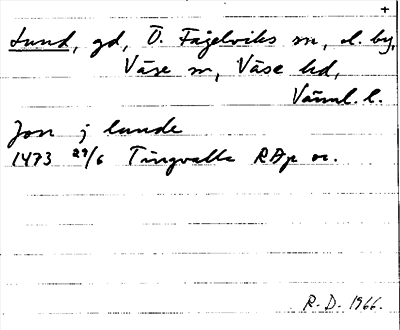 +
Lund, gd, Ö. Fågelviks sn, d. by,
Väse sn, Väse hd,
Värml. l.
Jon j lunde
1473 29/6 Tingvalla RAp or.
R. D. 1966.